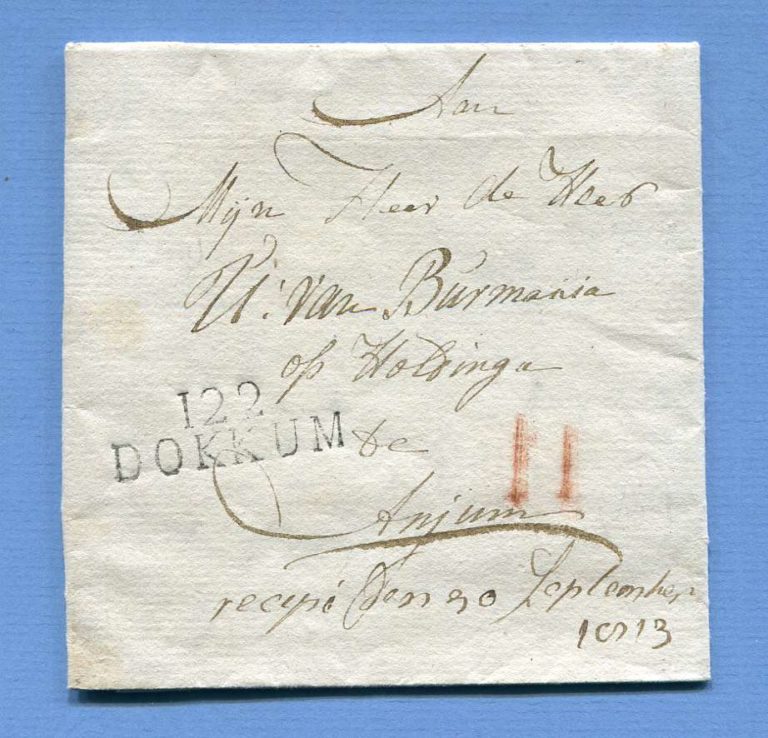 Aan
Mijn Heer de Heer
U: van Burmania
op Holdinga
122
DOKKUM
te
II
Anjum
recepi den 30 September
1813